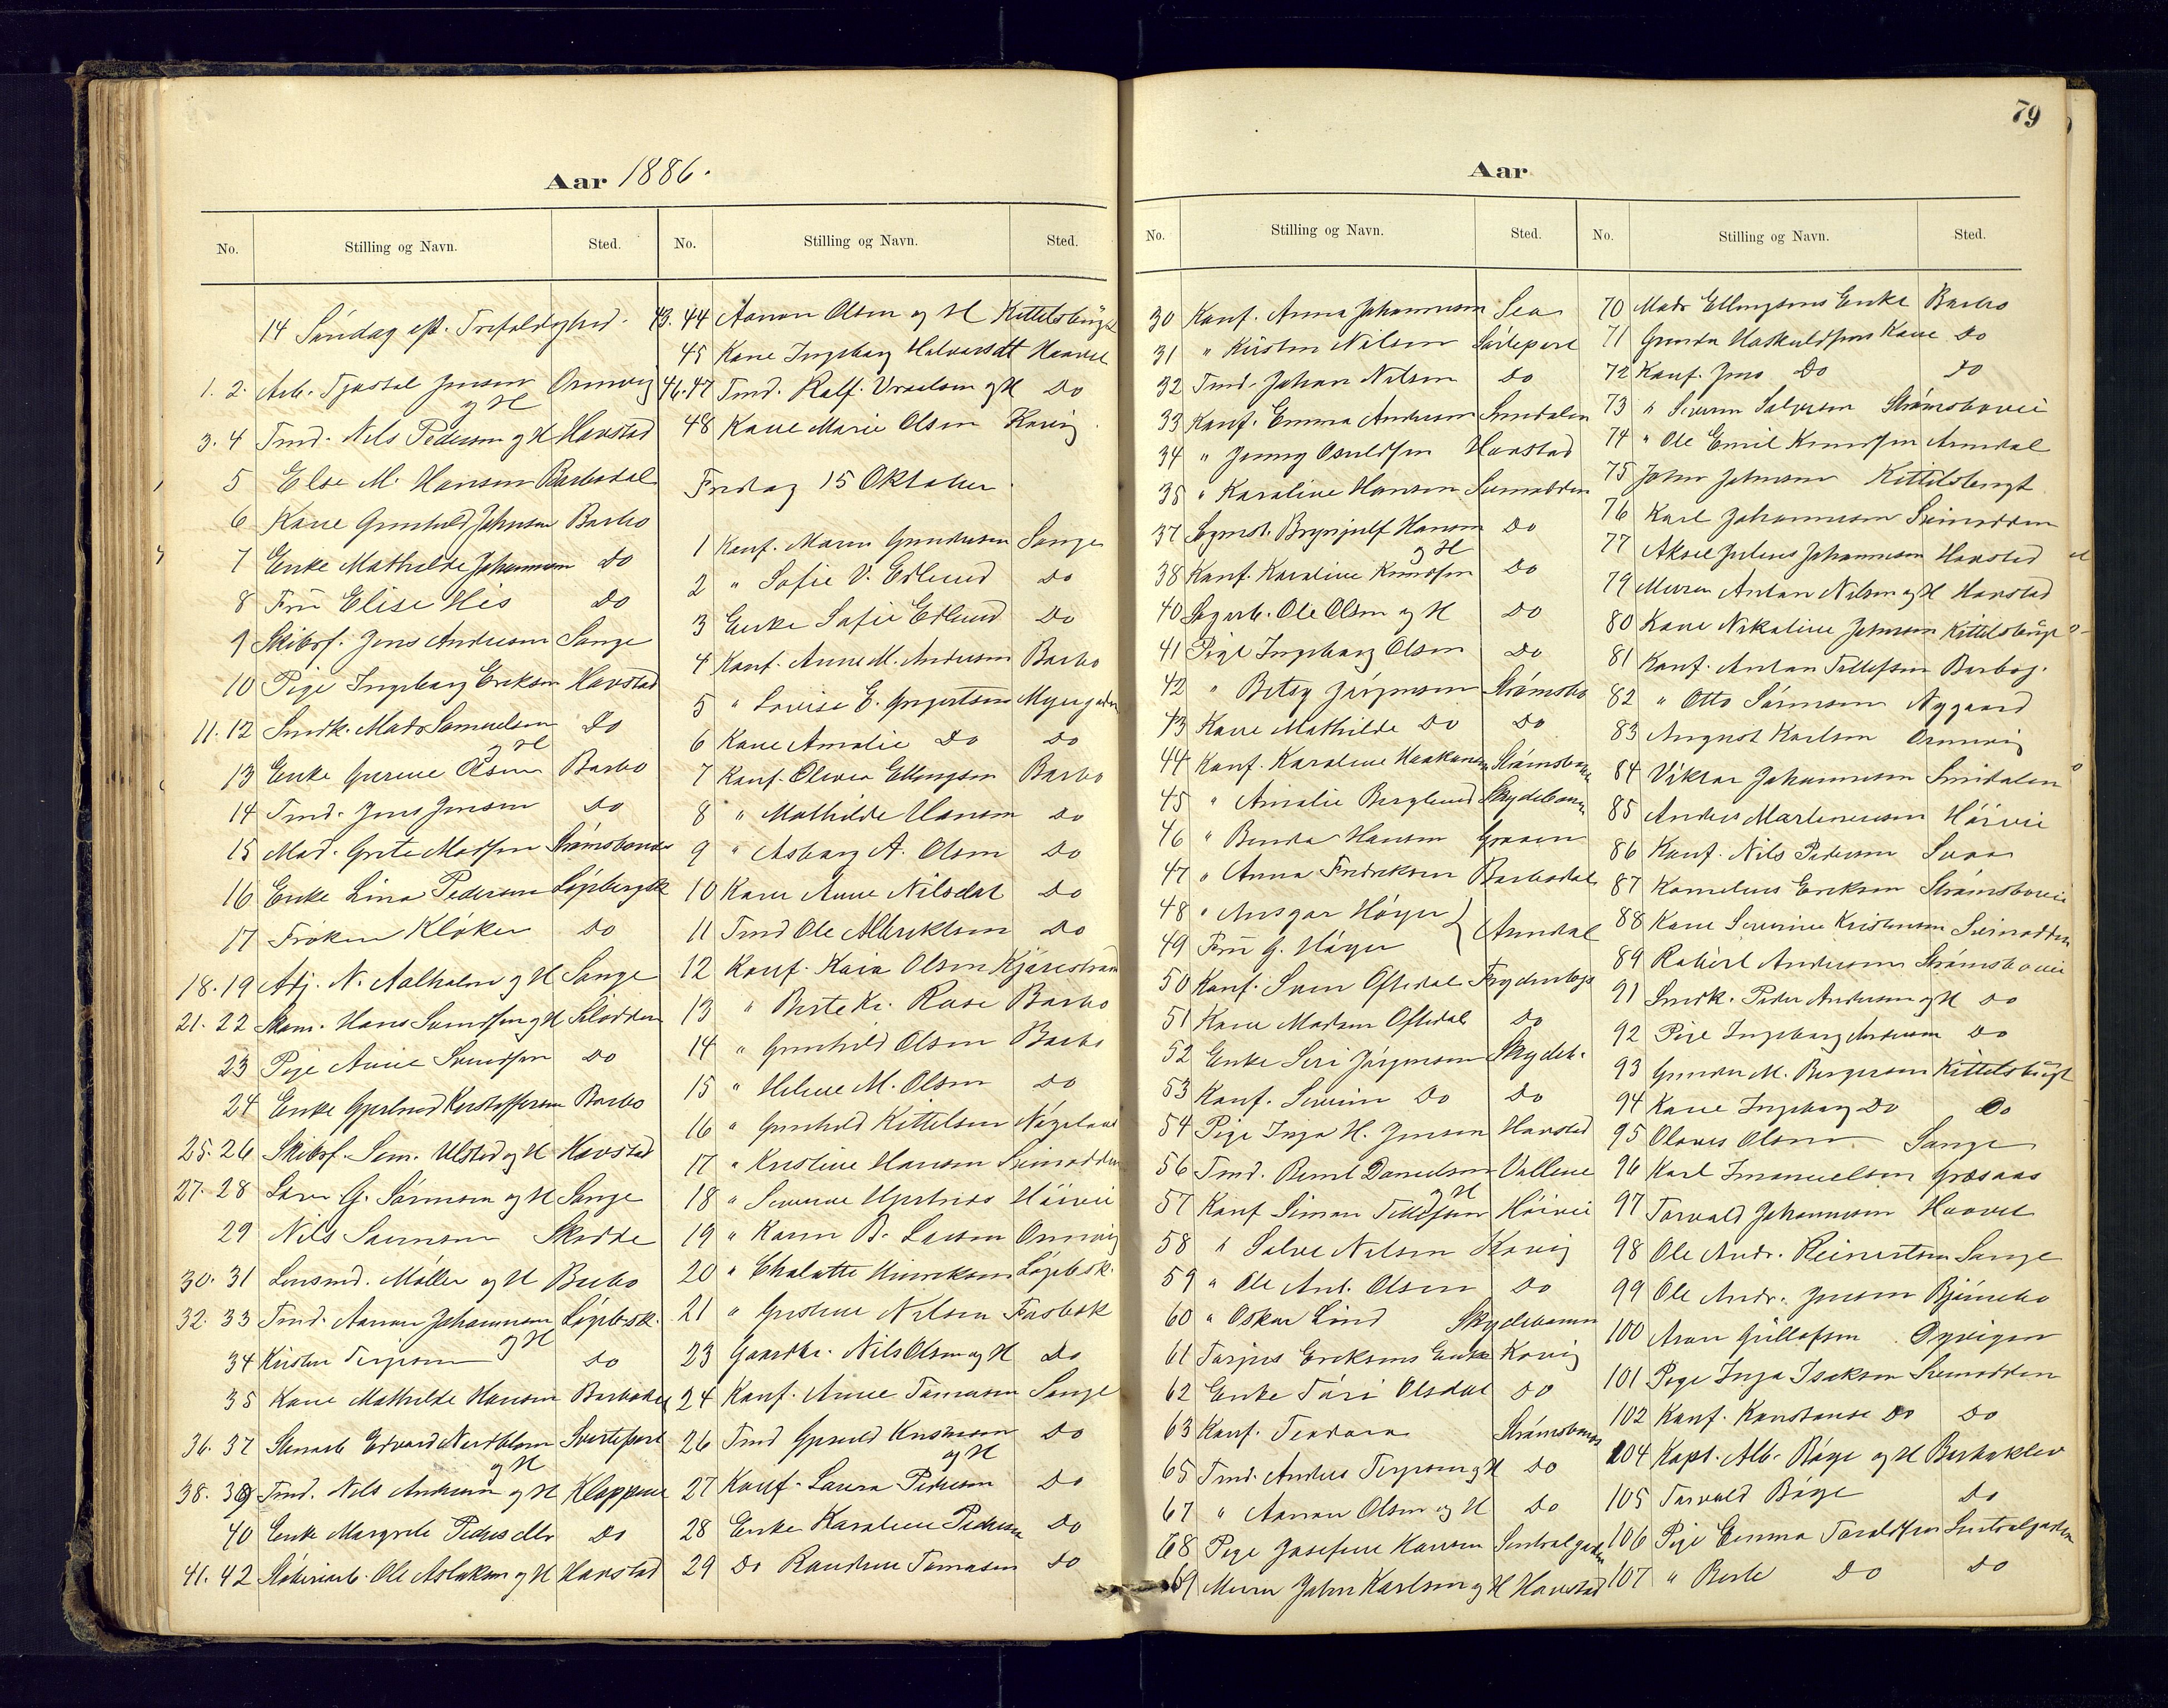 79
Aar 1886.
No. Stilling og Navn. Sted. No. Stilling og Navn. Sted.
14 Søndag eft. Trefoldighed.
1. 2. Arb. Tjøstal Jensen og H Ormvig
3. 4 Tmd. Nils Pedersen og H Havstad
5 Else M. Hansen Barbodal
6 Kone Gunhild Johnsen Barbo
7 Enke Mathilde Johannesen Do
8 Fru Elise His Do
9 Skibsf. Jens Andersen Songe
10 Pige Ingeborg Eriksen Havstad
11. 12 Smdk. Mads Samuelsen og H Do
13 Enke Gurine Olsen Barbo
14 Tmd. Jens Jensen Do
15 Mad. Grete Madsen Strømsbonde
16 Enke Lina Pedersen Løgebergsk
17 Frøken Kløker Do
18. 19 Adj. N. Aalholm og H Songe
21. 22 Skom. Hans Svendsen og H Slodden
23 Pige Anne Svendsen Do
24 Enke Gjerlaud Kristoffersen Barbo
25. 26 Skibsf. Sem. Ulsted og H Havstad
27. 28 Søren G. Sørensen og H Songe
29 Nils Sørensen Skodde
30. 31 Lensmd. Møller og H Barbo
32. 33 Tmd. Aanon Johannesen og H Løgebsk.
34 Kirsten Terjesen Do
35 Kone Mathilde Hansen Barbodal
36. 37 Stenarb Edvard Nordblom og H Svartepart
38. 39 Tmd. Nils Andersen og H Kloppene
40 Enke Margrete Pedersdtr Do
41. 42 Støberiarb. Ole Aslaksen og H Havstad
43. 44 Aanon Olsen og H Kittelsbugt
45 Kone Ingeborg Halvorsdt Haavet
46. 47 Tmd. Ralf. Vraalsen og H Do
48 Kone Marie Olsen Kovig
Fredag 15 Oktober
1 Konf. Maren Gundersen Songe
2 " Sofie V. Edlund Do
3 Enke Sofie Edlund Do
4 Konf. Anne M. Andersen Barbo
5 " Lovise E. Gregertsen Myregaden
6 Kone Amalie Do Do
7 Konf. Olivia Ellingsen Barbo
8 " Mathilde Hansen Do
9 " Asborg A. Olsen Do
10 Kone Anne Nilsdat Do
11 Tmd Ole Albrektsen Do
12 Konf. Kaia Olsen Kjærestrand
13 " Berte Kr. Rose Barbo
14 " Gunhild Olsen Barbo
15 " Helene M. Olsen Do
16 " Gunhild Kittelsen Nøgeland
17 " Kristine Hansen Svinodden
18 " Severine Høivei
19 " Karen B. Larsen Ormvig
20 " Chalotte Hinriksen Løgebsk.
21 " Gustine Nilsen Fosbæk
23 Gaardbr. Nils Olsen og H Do
24 Konf. Anne Tomasen Songe
26 Tmd Gjeruld Knudsen og H Do
27 Konf. Laura Pedersen Do
28 Enke Karoline Pedersen Do
29 Do Randine Tomasen Do
Aar
No. Stilling og Navn. Sted. No. Stilling og Navn. Sted.
30 Konf. Anna Johannesen Sea
31 " Kirsten Nilsen Sørlepart
32 Tmd. Johan Nilsen Do
33 Konf. Emma Andersen Smidalen
34 " Jenny Osuldsen Havstad
35 " Karoline Hansen Svinodden
37 Bynjulf Hansen og H Do
38 Konf. Karoline Knudsen Do
40 Sagarb. Ole Olsen og H Do
41 Pige Ingeborg Olsen Do
42 " Betsy Jørgensen Strømsbo
43 Kone Mathilde Do Do
44 Konf. Karoline Haakonsen Strømsbonde
45 " Amalie Berglund Skydebanen
46 " Benda Hansen Graaen
47 " Anna Fredriksen Barbodal
48 " Ansgar Høyer } Arendal
49 Fru G. Høyer
50 Konf. Sven Oftedal Frydenlys
51 Kone Madsen Oftedal Do
52 Enke Siri Jørgensen Skydeb.
53 Konf. Severin Do Do
54 Pige Inga H. Jensen Havstad
56 Tmd. Bernt Danielsen og H Vallene
57 Konf Simon Tellefsen Høivei
58 " Salve Nilsen Kovig
59 " Ole Ant. Olsen Do
60 " Oskar Lind Skydebanen
61 Torjus Eriksens Enke Kovig
62 Enke Tari Olsdat Do
63 Konf. Teodora Strømsbonde
65 Tmd. Anders Terjesen og H Do
67 " Aanon Olsen og H Do
68 Pige Josefine Hansen Sentralgaden
69 Murer John Karlsen og H Havstad
70 Mads Ellingsens Enke Barbo
71 Gunda Haskuldsens Kone Do
72 Konf. Jens Do Do
73 " Severin Salvesen Strømsbovei
74 " Ole Emil Knudsen Arendal
75 John Johnsen Kittelsbugt
76 Karl Johannesen Svinodden
77 Aksel Julius Johannesen Havsted
79 Murer Anton Nilsen og H Havstad
80 Kone Nikoline Johnsen Kittelsbugt
81 Konf. Anton Tellefsen Barbog.
82 " Otto Sørensen Nygaard
83 August Karlsen Ormvig
84 Viktor Johannesen Smidalen
85 Anders Martinussen Høivei
86 Konf. Nils Pedersen Svaa
87 Kornelius Eriksen Strømsbovei
88 Kone Severine Kristensen Svinodden
89 Robert Andersen Strømsbovei
91 Smdk. Peder Andersen og H Do
92 Pige Ingeborg Andersen Do
93 Gunder M. Bergersen Kittelsbugt
94 Kone Ingeborg Do Do
95 Olaves Olsen Songe
96 Karl Imanuelsen Græsaas
97 Torvald Johannesen Haavet
98 Ole Andr. Reinertsen Songe
99 Ole Andr. Jensen Bjørnebo
100 Aron Gullofsen Dyvigen
101 Pige Inga Isaksen Svinodden
102 Konf. Konstanse Do Do
104 Kapt. Alb. Bøge og H Barbaklev
105 Torvald Bøge Do
106 Pige Emma Taraldsen Sentralgaden
107 " Berte Do Do